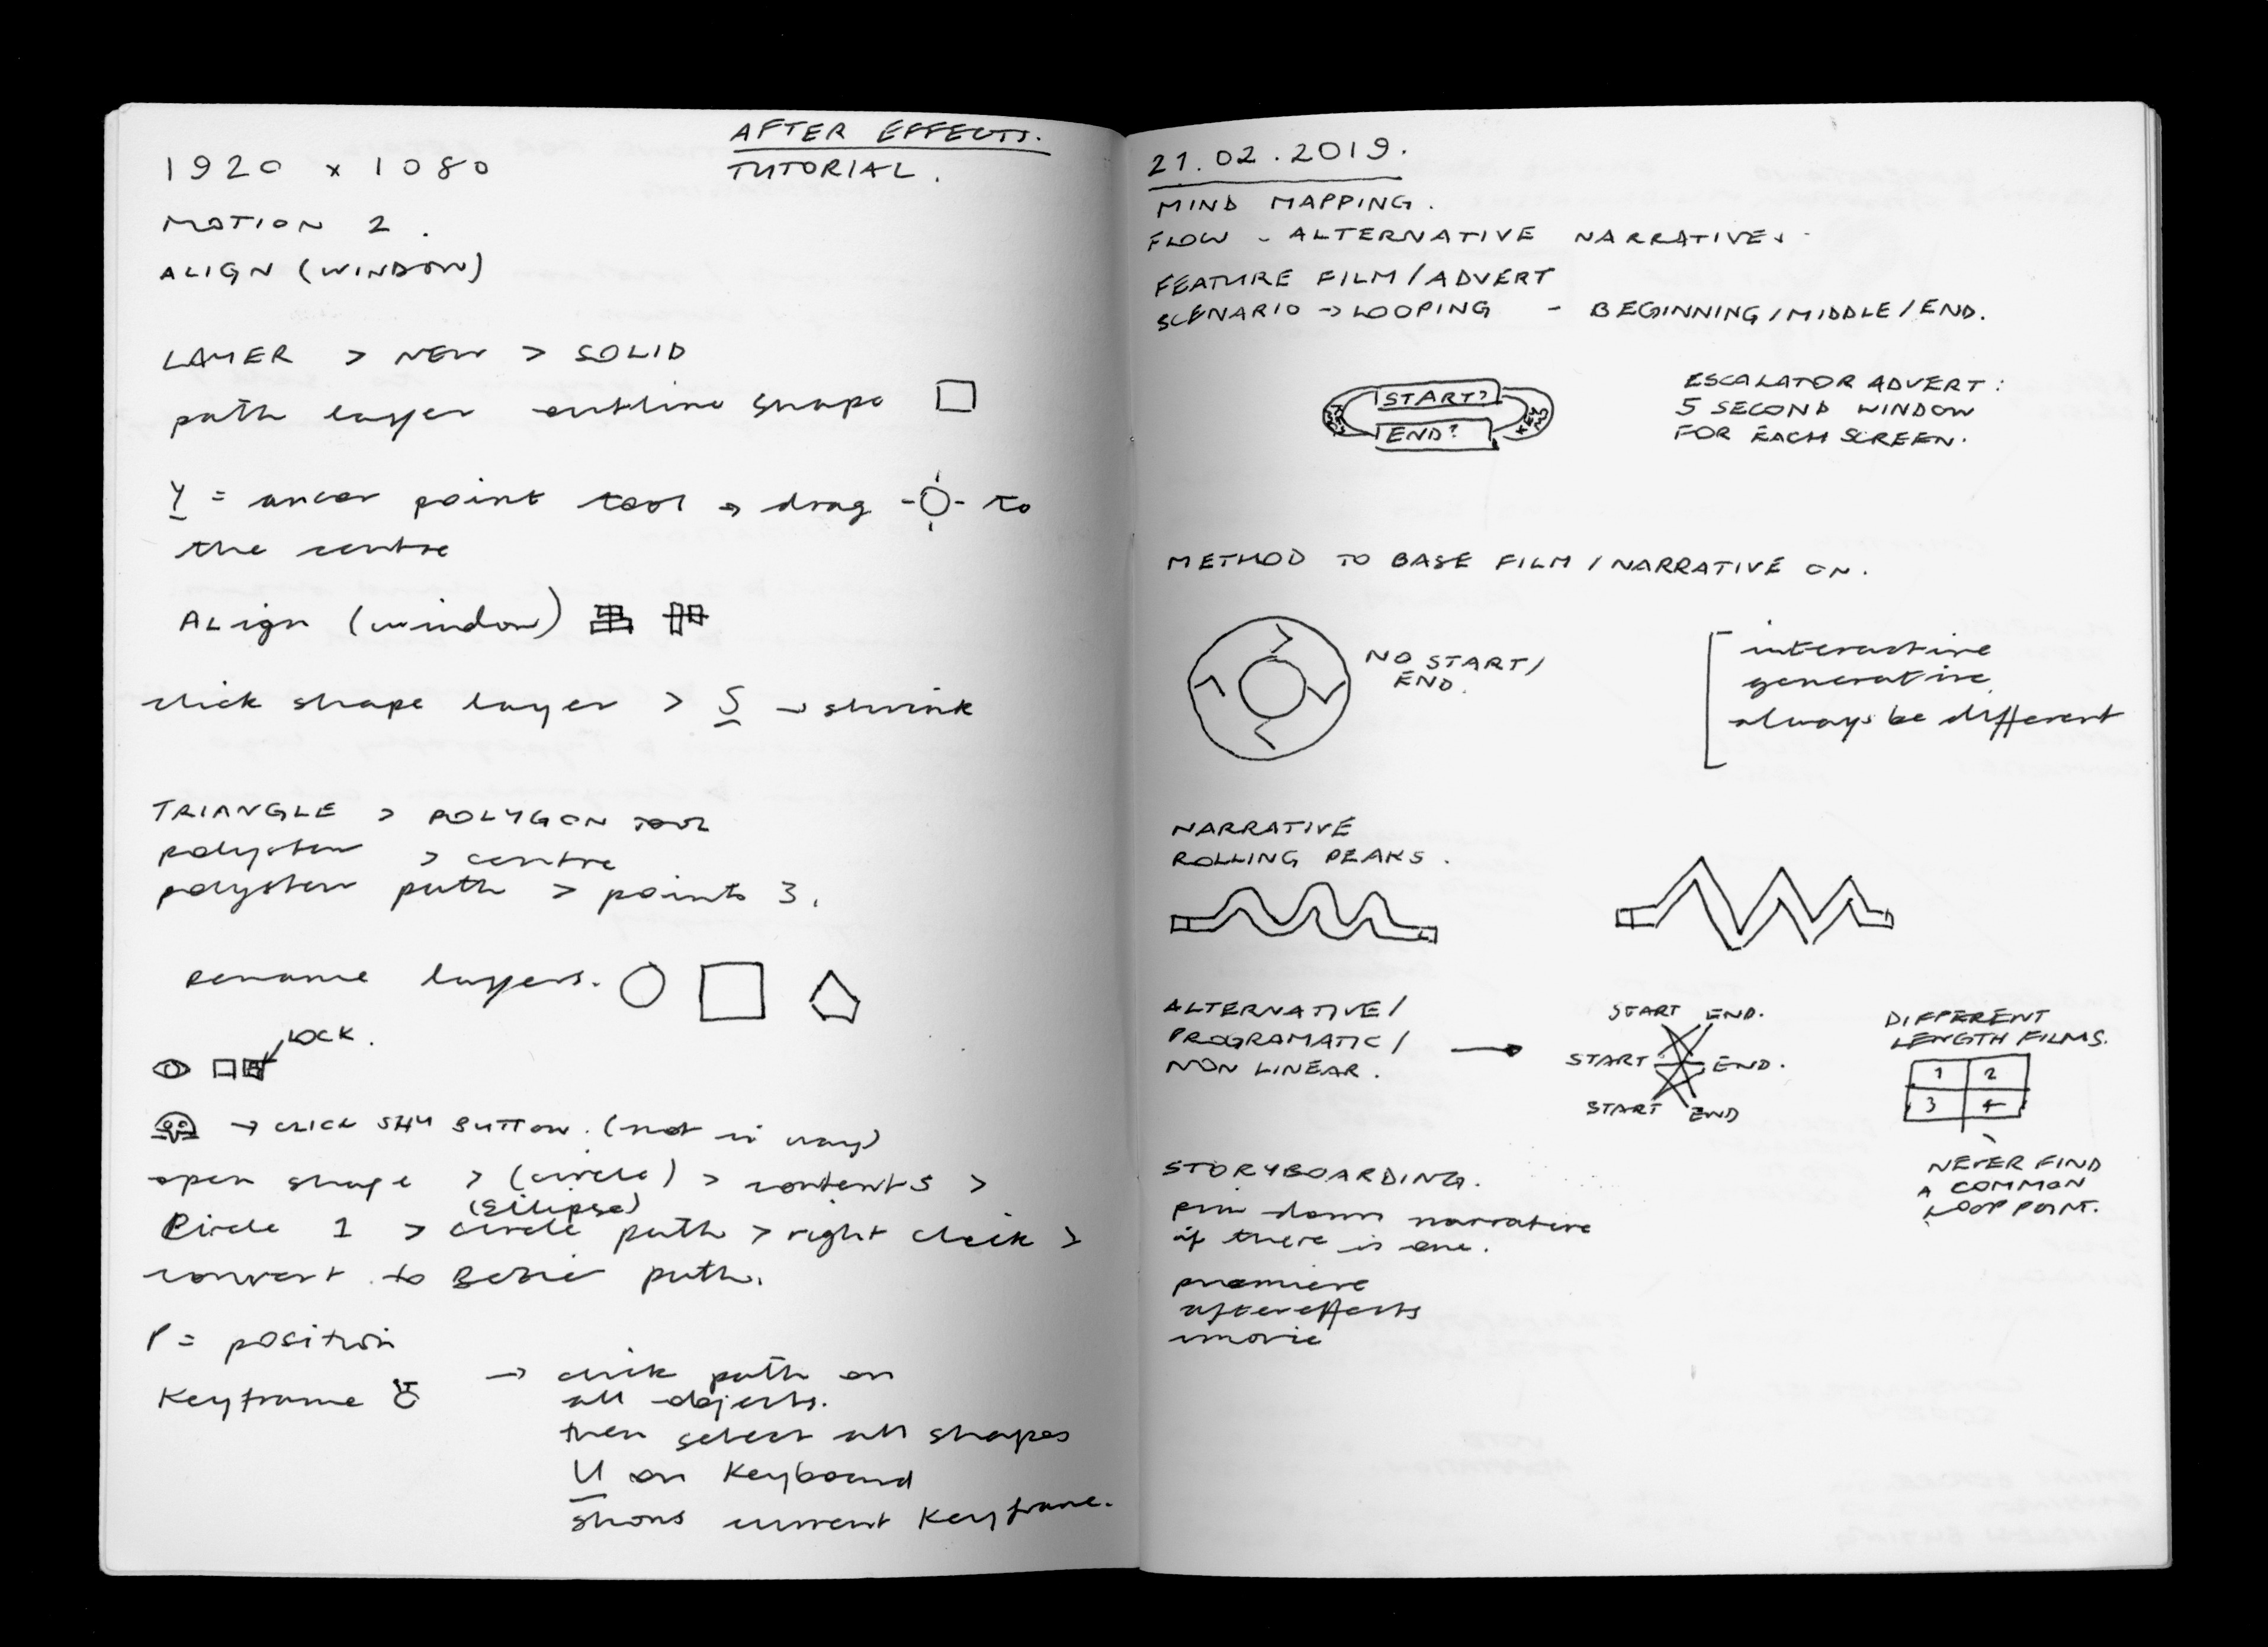 AFTER EFFECTS.
TUTORIAL.
1920 x 1080
MOTION 2.
ALIGN (WINDOW)
LAYER > NEW > SOLID
path layer outline shape
Y = ancor point tool → drag to
the centre
ALign (window)
click shape layer > S → shrink
TRIANGLE > POLYGON TOOL
polystar > centre
polystar path > points 3.
rename layers.
LOCK.
→ CLICK SHY BUTTON. (not in way)
open shape > (circle) > contents >
(Ellipse)
Circle 1 > circle path > right click >
convert to Bezier path.
P = position
Keyframe → click path on
all objects.
then select all shapes
U on Keyboard
shows current Keyframe.
21.02.2019.
MIND MAPPING.
FLOW - ALTERNATIVE NARRATIVES.
FEATURE FILM/ADVERT
SCENARIO → LOOPING - BEGINNING/MIDDLE/END.
START?
END?
ESCALATOR ADVERT:
5 SECOND WINDOW
FOR EACH SCREEN.
METHOD TO BASE FILM/NARRATIVE ON.
NO START/
END.
interactive
generative
always be different
NARRATIVE
ROLLING PEAKS.
ALTERNATIVE/
PROGRAMATIC/
NON LINEAR.
START END.
START END.
START END
DIFFERENT
LENGTH FILMS.
1 2
3 4
NEVER FIND
A COMMON
LOOP POINT.
STORYBOARDING.
pin down narrative
if there is one.
premiere
aftereffects
imovie